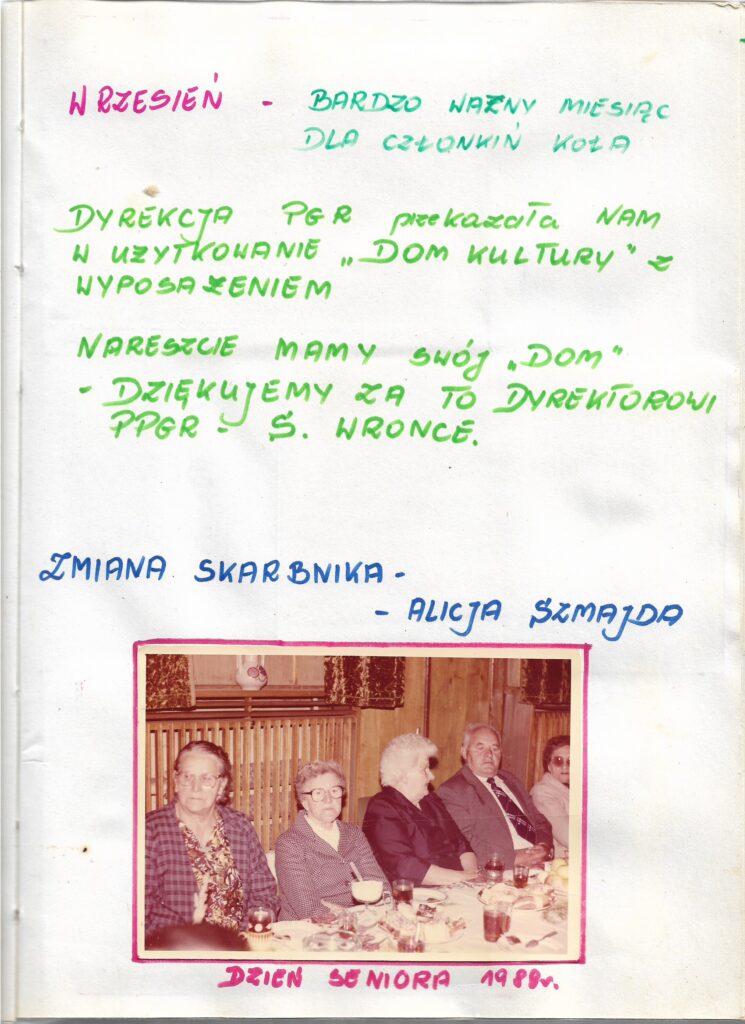 WRZESIEŃ - BARDZO WAŻNY MIESIĄC
DLA CZŁONKIŃ KOŁA
DYREKCJA PGR przekazała NAM
W UŻYTKOWANIE „DOM KULTURY" z
WYPOSAŻENIEM
NARESZCIE MAMY SWÓJ „DOM"
- DZIĘKUJEMY ZA TO DYREKTOROWI
PPGR - S. WRONCE.
ZMIANA SKARBNIKA -
- ALICJA SZMAJDA
DZIEŃ SENIORA 1988r.